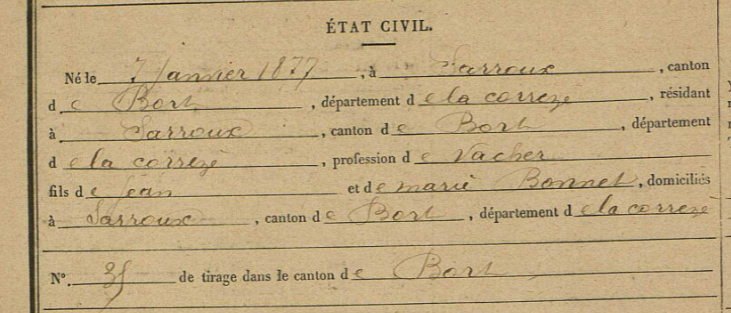 ÉTAT CIVIL.
Né le 7 Janvier 1877, à Sarroux, canton
de Bort, département de la correze, résidant
à Sarroux, canton de Bort, département
de la correze, profession de vacher
fils de jean et de marie Bonnet, domiciliés
à Sarroux, canton de Bort, département de la correze
N°. de tirage dans le canton de Bort